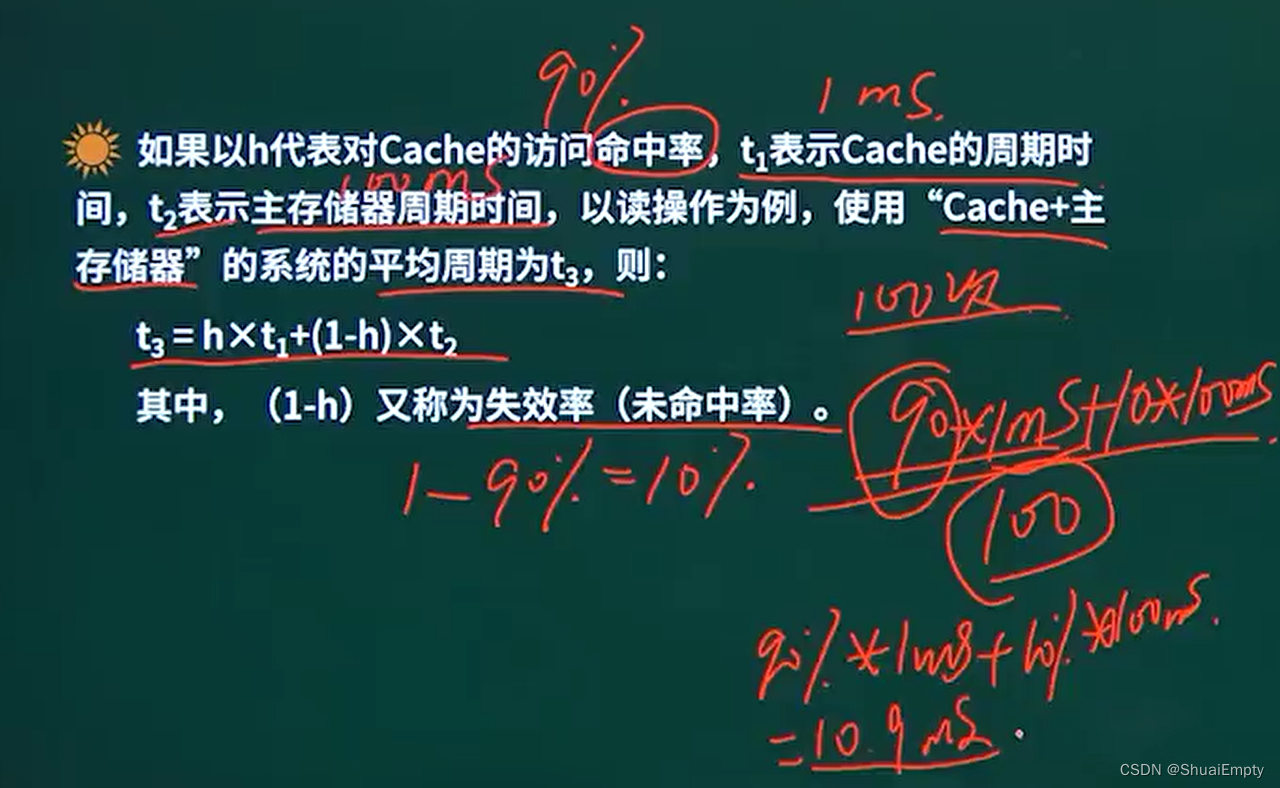 90%
1ms
如果以h代表对Cache的访问命中率，t₁表示Cache的周期时
100ms
间，t₂表示主存储器周期时间，以读操作为例，使用“Cache+主
存储器”的系统的平均周期为t₃，则：
100次
t₃ = h×t₁+(1-h)×t₂
其中，（1-h）又称为失效率（未命中率）。
90*1ms+10*100ms
100
1-90%=10%.
90%*1ms+10%*100ms.
=10.9ms.
CSDN @ShuaiEmpty